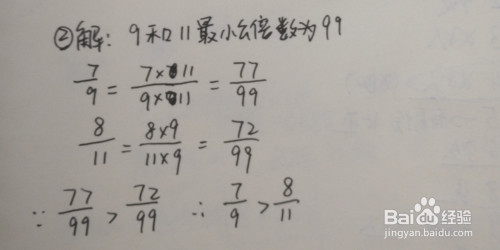 ②解：9和11最小公倍数为99
7/9 = 7×11/9×11 = 77/99
8/11 = 8×9/11×9 = 72/99
∵ 77/99 > 72/99 ∴ 7/9 > 8/11
Baidu经验
jingyan.baidu.com